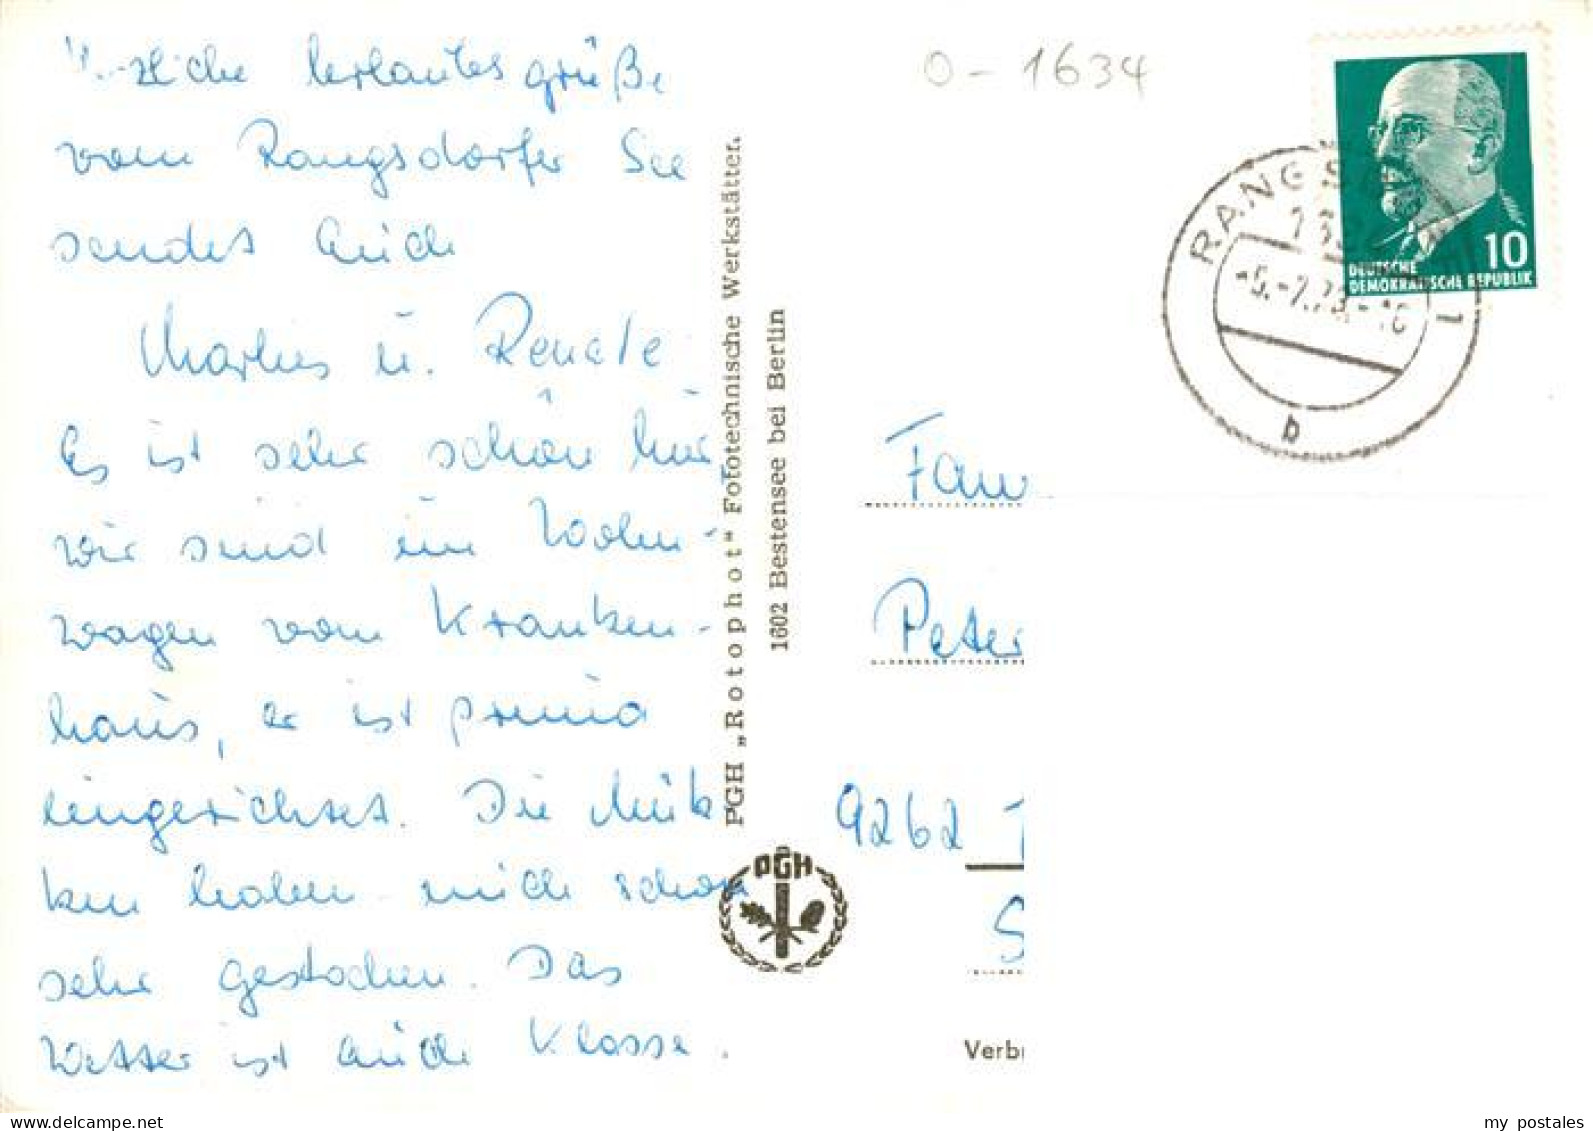 Herzliche Urlaubsgrüße
vom Rangsdorfer See
sendet Euch
u. Renate
Es ist sehr schön hier
wir sind im Wohn-
wagen vom Kranken-
haus, er ist prima
eingerichtet. Die Mük
ken haben mich schon
sehr gestochen. Das
Wetter ist auch Klasse.
PGH „Rotophot“ Fototechnische Werkstätten.
1602 Bestensee bei Berlin
PGH
O-1634
10
DEUTSCHE
DEMOKRATISCHE REPUBLIK
b
Fam
Peter
9262
S
Verb
my postales